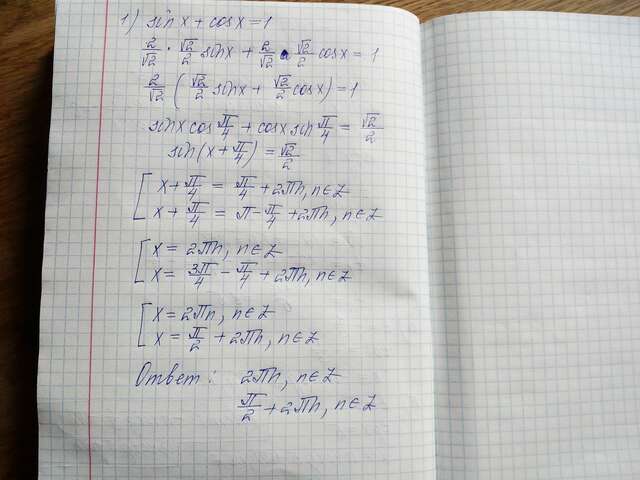 1) sin x + cos x = 1
2/√2 · √2/2 sin x + 2/√2 · √2/2 cos x = 1
2/√2 (√2/2 sin x + √2/2 cos x) = 1
sin x cos π/4 + cos x sin π/4 = √2/2
sin(x + π/4) = √2/2
[ x + π/4 = π/4 + 2πn, n ∈ Z
x + π/4 = π - π/4 + 2πn, n ∈ Z
[ x = 2πn, n ∈ Z
x = 3π/4 - π/4 + 2πn, n ∈ Z
[ x = 2πn, n ∈ Z
x = π/2 + 2πn, n ∈ Z
Ответ: 2πn, n ∈ Z
π/2 + 2πn, n ∈ Z